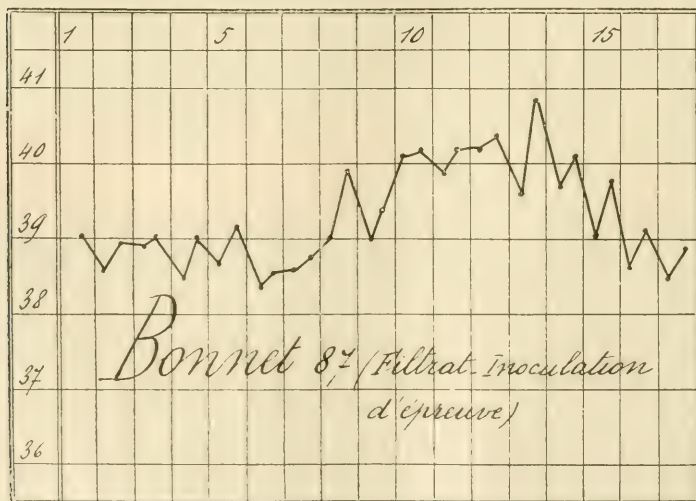 1 5 10 15
41
40
39
38
Bonnet 8,7 (Filtrat-Inoculation
37
d'épreuve)
36